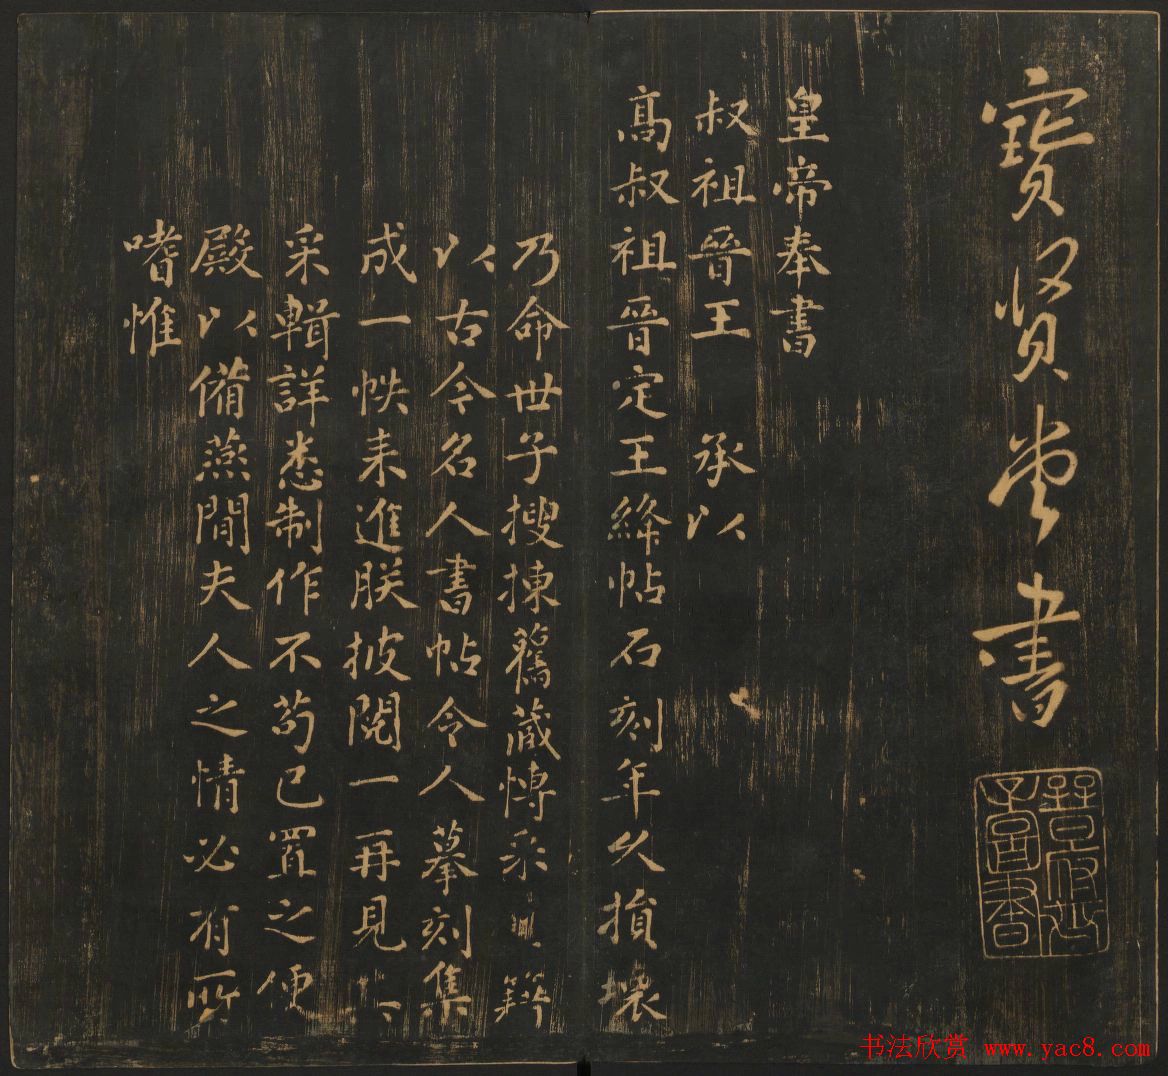 寳賢堂書
皇帝奉書
叔祖晉王 承以
髙叔祖晉定王絳帖石刻年久損壞
乃命世子搜揀舊藏愽采 籍
以古今名人書帖令人摹刻集
成一帙耒進朕披閱一再見其
采輯詳悉制作不苟已置之便
殿以備燕閒夫人之情必有所
嗜惟
书法欣赏 www.yac8.com